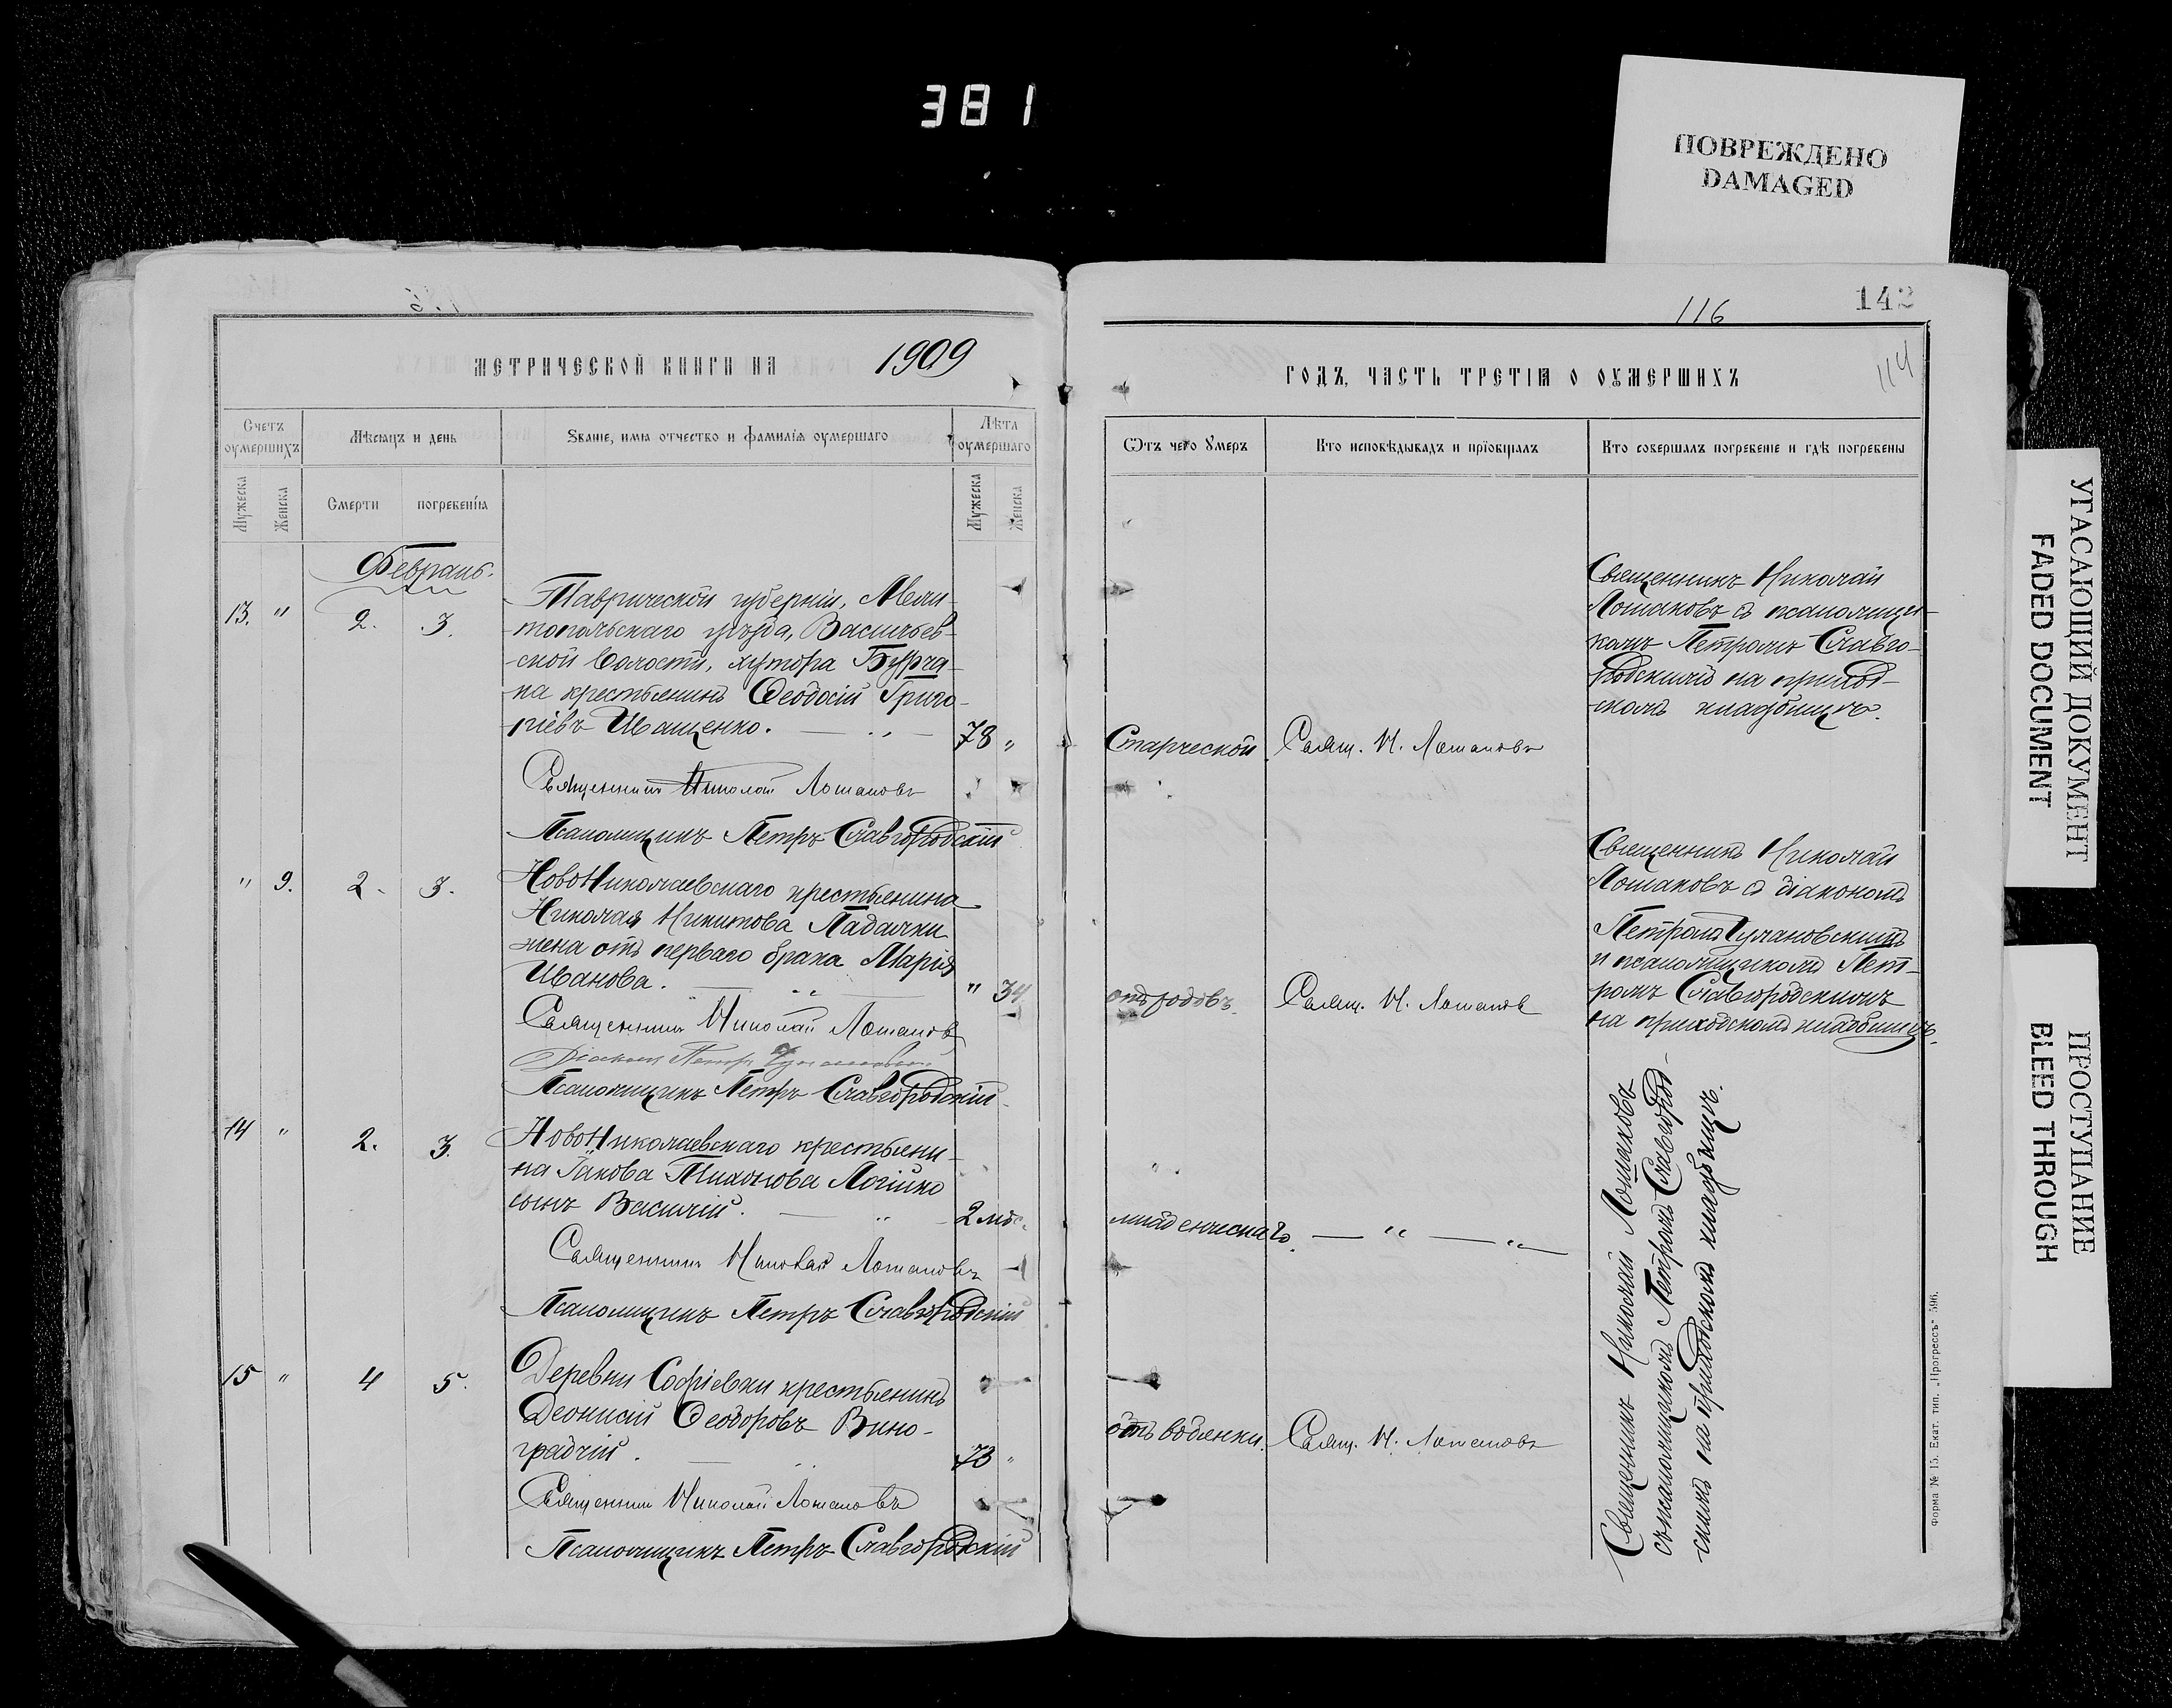 381
ПОВРЕЖДЕНО
DAMAGED
УГАСАЮЩИЙ ДОКУМЕНТ
FADED DOCUMENT
ПРОСТУПАНИЕ
BLEED THROUGH
МЕТРИЧЕСКОЙ КНИГИ НА 1909
Счетъ оумершихъ
Мѣсяцъ и день
Званіе, имя отчество и фамилія оумершаго
Лѣта оумершаго
Мужеска
Женска
Смерти
погребенія
Мужеска
Женска
Февраль.
13. " 2. 3.
Таврической губерніи, Мели-
топольскаго уѣзда, Васильев-
ской волости, хутора Бурча-
ка крестьянинъ Ѳеодосій Григо-
ріевъ Иващенко. — „ — 78 "
Священникъ Николай Лошаковъ
Псаломщикъ Петръ Славгородскій
" 9. 2. 3.
НовоНиколаевскаго крестьянина
Николая Никитова Падалки
жена отъ перваго брака Марія
Иванова. — „ — " 34
Священникъ Николай Лошаковъ
Діаконъ Петръ
Псаломщикъ Петръ Славгородскій
14 " 2. 3.
НовоНиколаевскаго крестьяни-
на Іакова Тихонова
сынъ Василій. — „ — 2 мѣс.
Священникъ Николай Лошаковъ
Псаломщикъ Петръ Славгородскій
15 " 4 5.
Деревни Софіевки крестьянинъ
Діонисій Ѳеодоровъ Вино-
градчій. — „ 73 "
Священникъ Николай Лошаковъ
Псаломщикъ Петръ Славгородскій
116
142
114
ГОДЪ, ЧАСТЬ ТРЕТІЯ О ОУМЕРШИХЪ
Ѿтъ чего Умеръ
Кто исповѣдывалъ и пріобщалъ
Кто совершалъ погребеніе и гдѣ погребены
Священникъ Николай
Лошаковъ съ псаломщи-
комъ Петромъ Славго-
родскимъ на приход-
скомъ кладбищѣ.
Старческой Свящ. Н. Лошаковъ
Священникъ Николай
Лошаковъ съ діакономъ
Петромъ
и псаломщикомъ Пет-
ромъ Славгородскимъ
на приходскомъ кладбищѣ.
отъ родовъ. Свящ. Н. Лошаковъ
младенческаго. — „ — „ —
отъ водянки. Свящ. Н. Лошаковъ
Священникъ Николай Лошаковъ
съ псаломщикомъ Петромъ Славгород-
скимъ на приходскомъ кладбищѣ.
Форма № 15. Екат. тип. „Прогрессъ" 596.